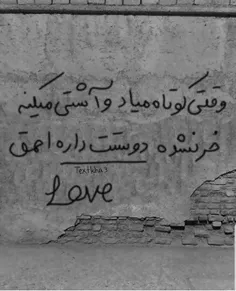 وقتی کوتاه میاد و آشتی میکنه
خر نشده دوستت داره احمق
Textkha3
Love